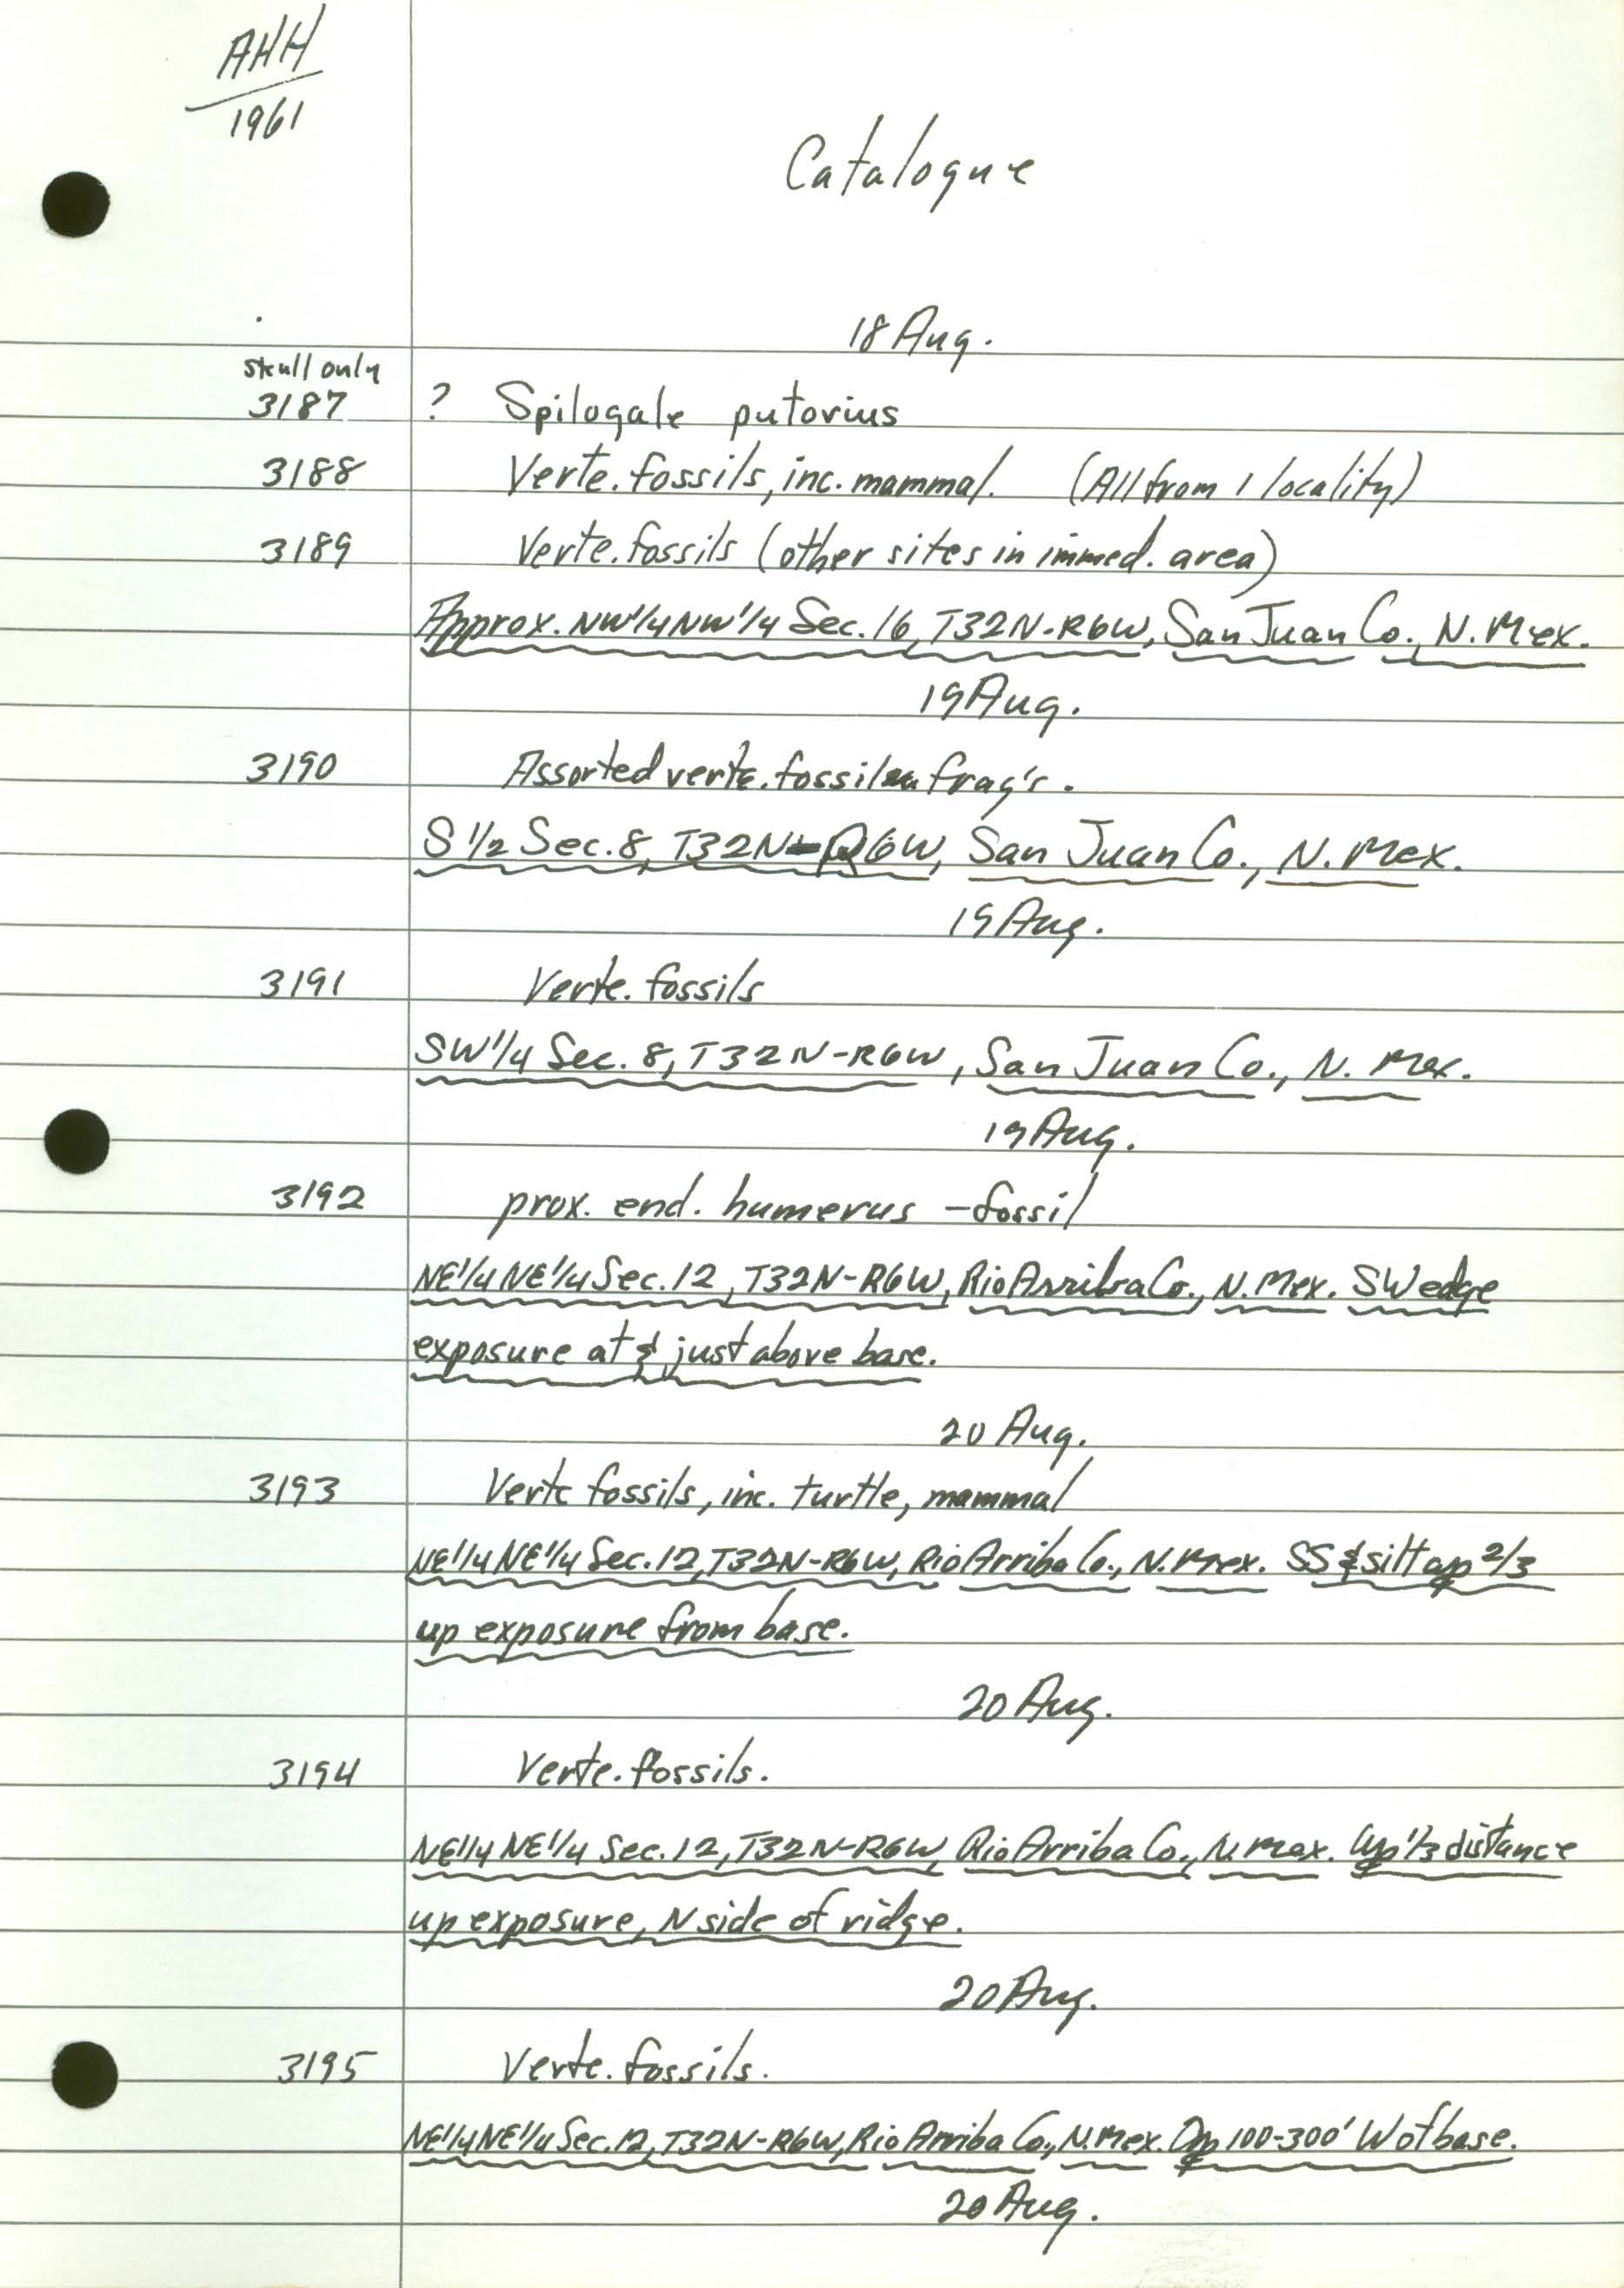 AHH
1961
Catalogue
18 Aug.
skull only
3187 ? Spilogale putorius
3188 Verte. fossils, inc. mammal. (All from 1 locality)
3189 Verte. fossils (other sites in immed. area)
Approx. NW1/4NW1/4 Sec. 16, T32N-R6W, San Juan Co., N. Mex.
19 Aug.
3190 Assorted verte. fossil frag's.
S 1/2 Sec. 8, T32N-R6W, San Juan Co., N. Mex.
19 Aug.
3191 Verte. fossils
SW1/4 Sec. 8, T32N-R6W, San Juan Co., N. Mex.
19 Aug.
3192 prox. end. humerus - fossil
NE1/4 NE1/4 Sec. 12, T32N-R6W, Rio Arriba Co., N. Mex. SW edge
exposure at & just above base.
20 Aug.
3193 Verte fossils, inc. turtle, mammal
NE1/4 NE1/4 Sec. 12, T32N-R6W, Rio Arriba Co., N. Mex. SS & silt ap 2/3
up exposure from base.
20 Aug.
3194 Verte. fossils.
NE1/4 NE1/4 Sec. 12, T32N-R6W, Rio Arriba Co., N. Mex. ap 1/3 distance
up exposure, N side of ridge.
20 Aug.
3195 Verte. fossils.
NE1/4 NE1/4 Sec. 12, T32N-R6W, Rio Arriba Co., N. Mex. Ap 100-300' W of base.
20 Aug.